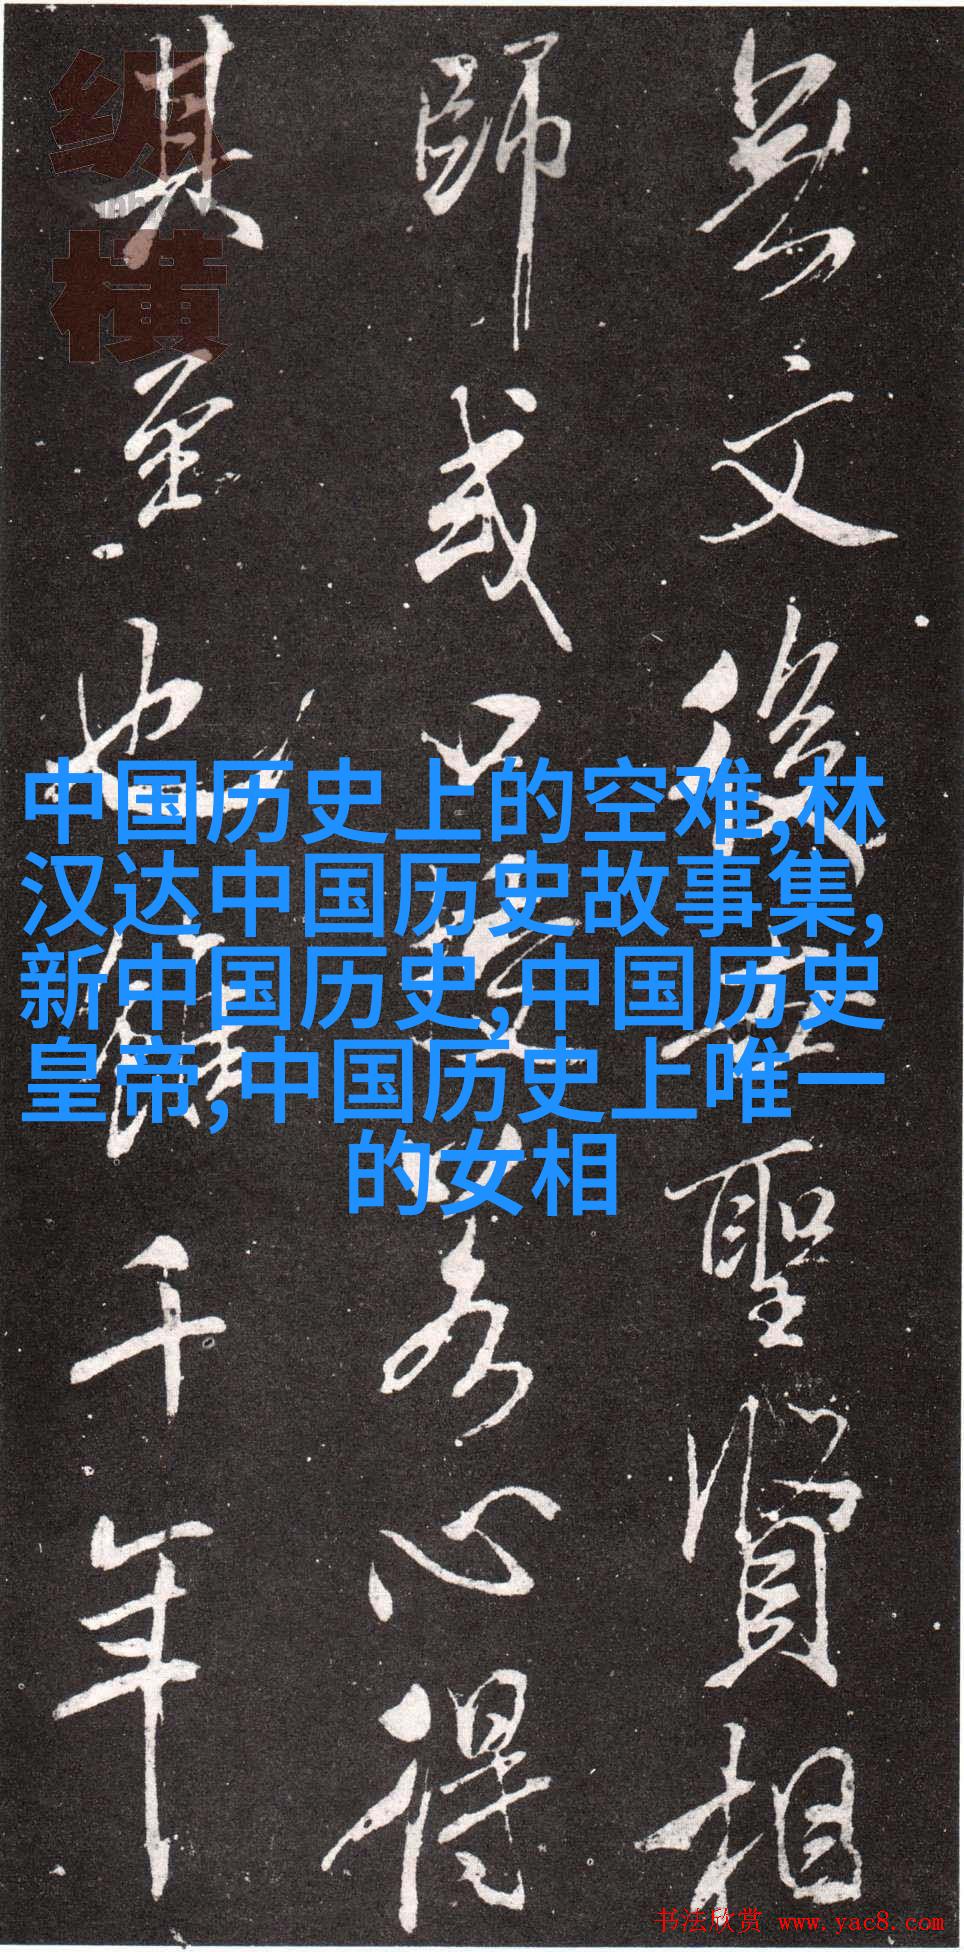 文後世聖賢相
師或口授心得
其至也雖千年
横
中国历史上的空难,林
汉达中国历史故事集,
新中国历史,中国历史
皇帝,中国历史上唯一
的女相
书法欣赏 www.yac8.com